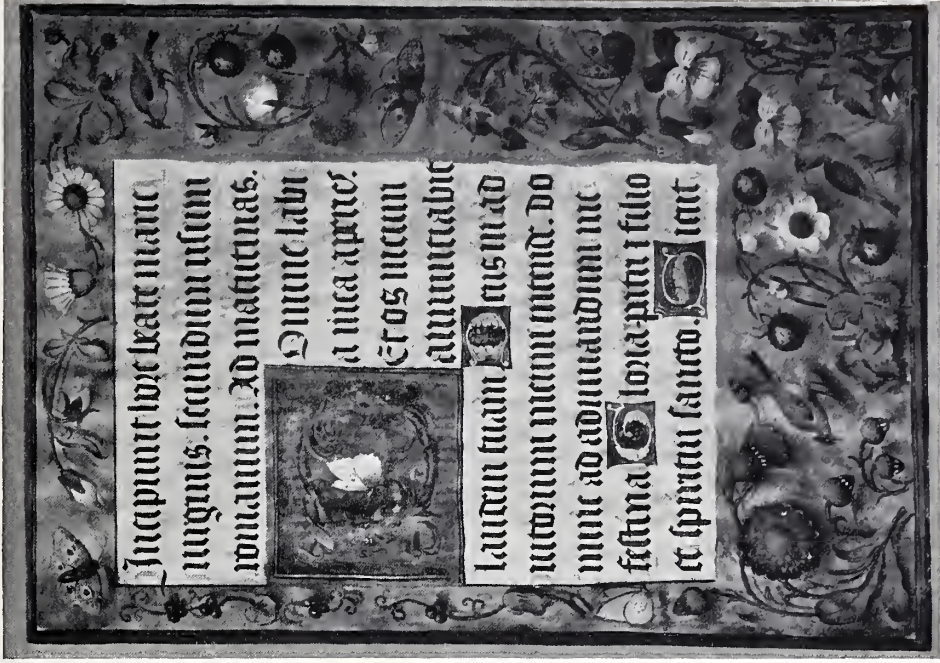 Incipiunt hore beate marie
uirginis. secundum usum
romanum. Ad matutinas.
Domine labi
a mea aperies.
Et os meum
annuntiabit
laudem tuam Deus in ad
iutorium meum intende. Do
mine ad adiuuandum me
festina Gloria patri et filio
et spiritui sancto. Sicut